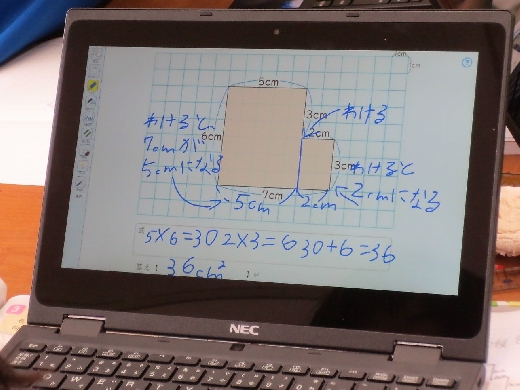 1cm
1cm
5cm
3cm
わける
わけると
6cm
2cm
7cmが
3cm
わけると
5cmになる
2cmになる
7cm
5cm
2cm
式
5×6=30 2×3=6 30+6=36
答え
36cm²
NEC